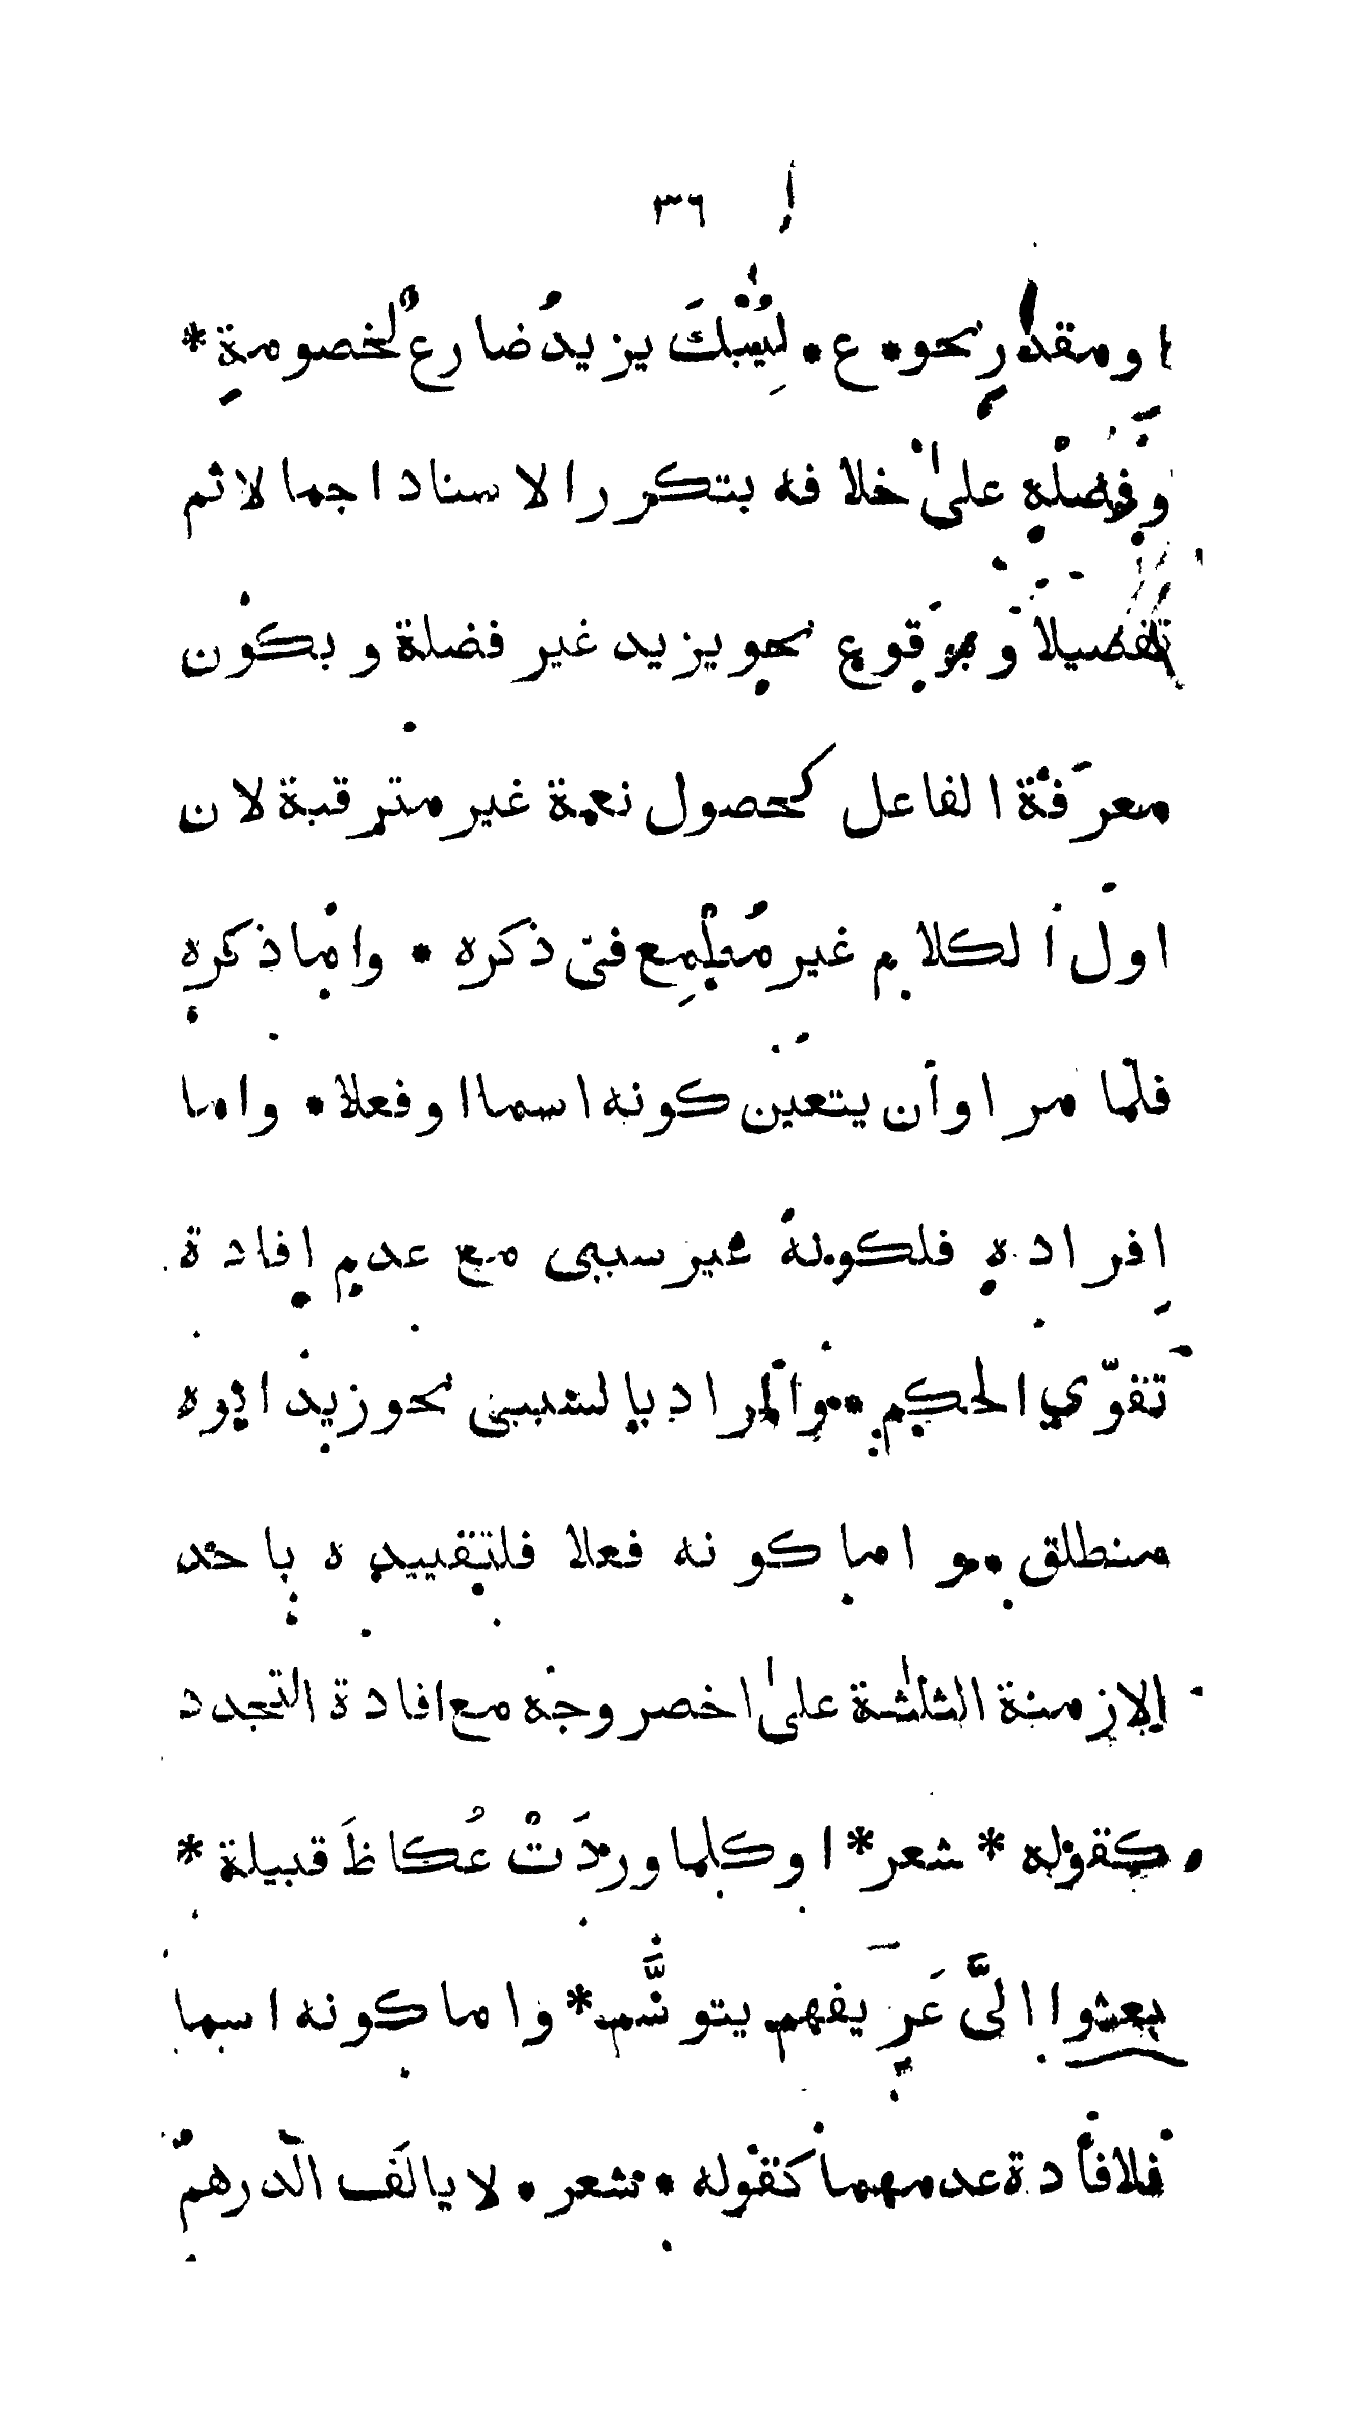 ٣٦
او مقدر نحو * ع * لِيُبْكَ يزيدُ ضارعٌ لخصومةٍ *
وفضله على خلافه بتكرر الاسناد اجمالا ثم
تفصيلا و بوقوع نحو يزيد غير فضلة و بكون
معرفة الفاعل كحصول نعمة غير مترقبة لان
اول الكلام غير مُطْمِع فى ذكره * واما ذكره
فلما مر او أن يتعين كونه اسما او فعلا * واما
افراده فلكونه غير سببى مع عدم افادة
تقوّي الحكم * والمراد بالسببى نحو زيد ابوه
منطلق * و اما كونه فعلا فلتقييده باحد
الازمنة الثلثة على اخصر وجه مع افادة التجدد
كقوله * شعر * او كلما وردَتْ عُكاظَ قبيلة *
بعثوا الىَّ عَرِيفهم يتوسَّم * واما كونه اسما
فلافادة عدمهما كقوله * شعر * لا يالَف الدرهمُ